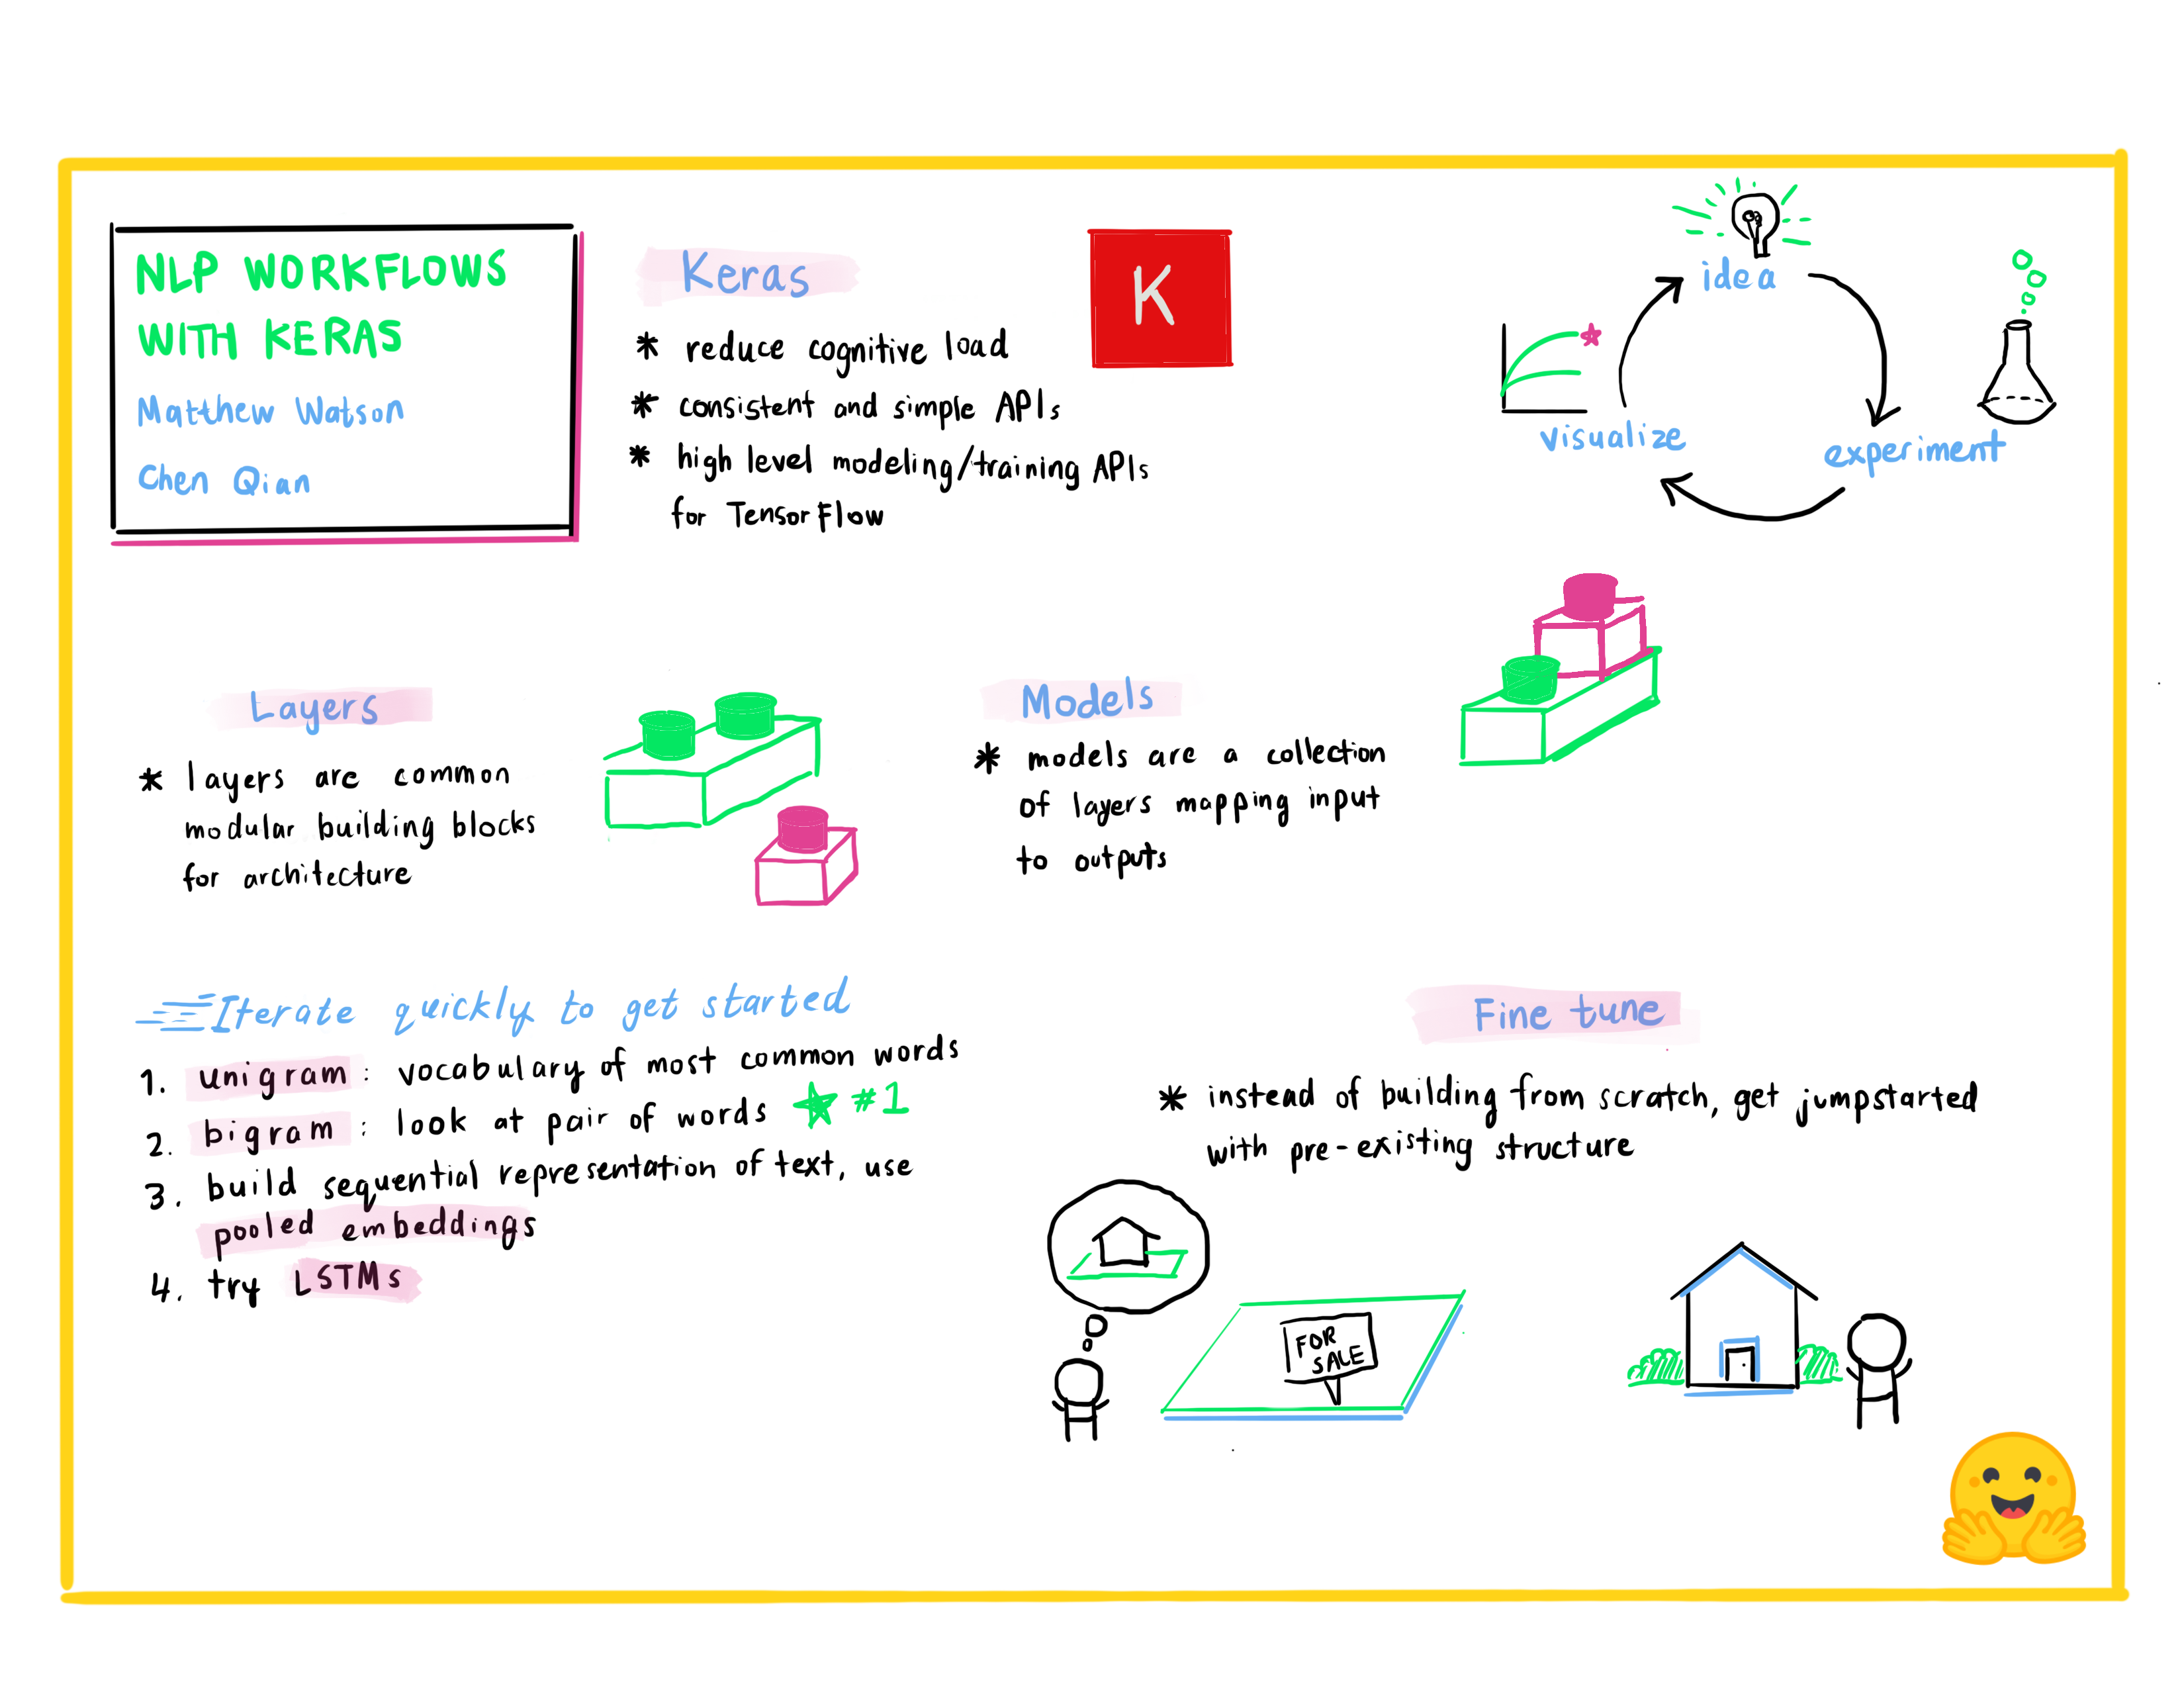 NLP WORKFLOWS
WITH KERAS
Matthew Watson
Chen Qian
Keras
* reduce cognitive load
* consistent and simple APIs
* high level modeling/training APIs
for TensorFlow
K
idea
experiment
visualize
Layers
* layers are common
modular building blocks
for architecture
Models
* models are a collection
of layers mapping input
to outputs
Iterate quickly to get started
1. unigram: vocabulary of most common words
2. bigram: look at pair of words #1
3. build sequential representation of text, use
pooled embeddings
4. try LSTMs
Fine tune
* instead of building from scratch, get jumpstarted
with pre-existing structure
FOR
SALE